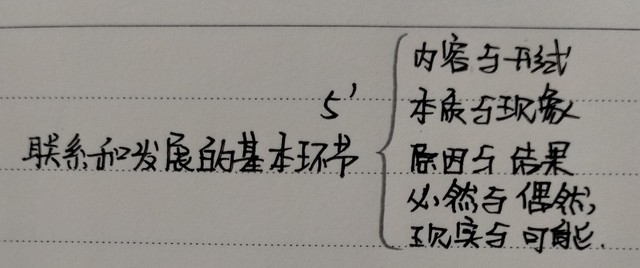 内容与形式
5'
本质与现象
联系和发展的基本环节
原因与结果
必然与偶然,
现实与可能.